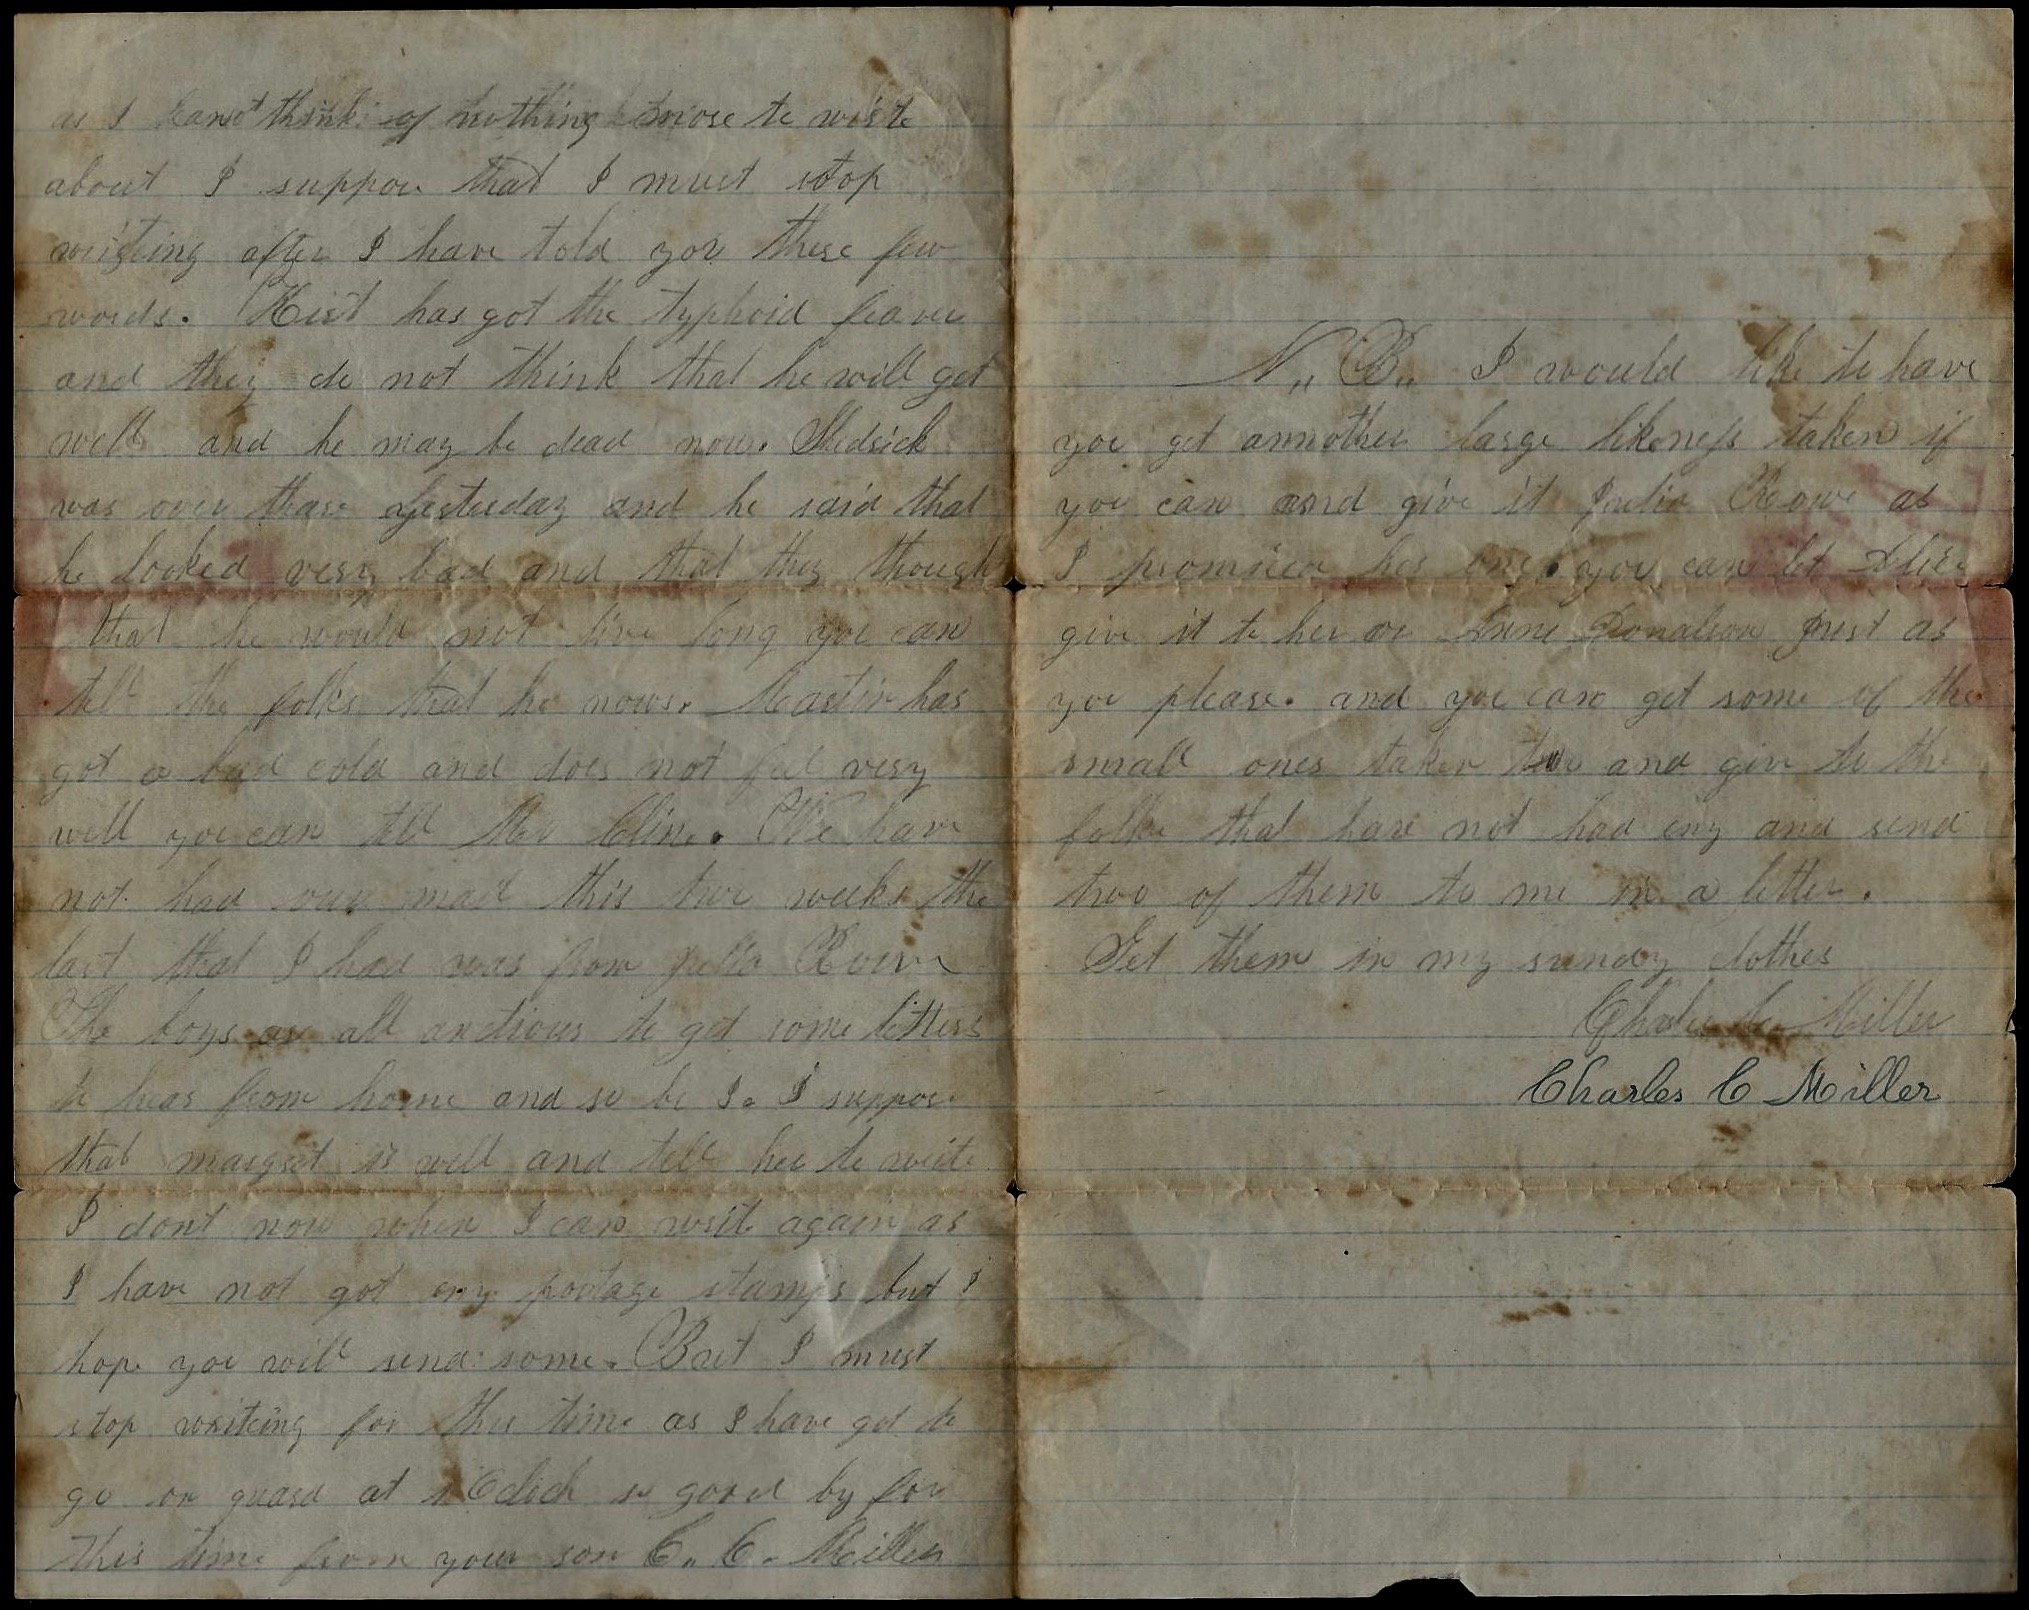 as I canot think of nothing more to write
about I suppose that I must stop
writeing after I have told you these few
words. Hirt has got the typhoid feaver
and they do not think that he will get
well and he may be dead now. Shedrick
was over thare yesterday and he said that
he looked very bad and that they though
that he would not live long you can
tell the folks that he nows. Martin has
got a bad cold and does not feel very
well you can tell Mrs Cline. We have
not had our mail this two weeks the
last that I had was from Julia Rowe
The boys are all anctious to get some letters
to hear from home and so be I. I suppose
that margret is well and tell her to write
I dont now when I can write again as
I have not got eny postage stamps but I
hope you will send some. But I must
stop writeing for this time as I have got to
go on guard at Oclock so good by for
this time from your son C. C. Miller
N,, B,, I would like to have
you get annother large likeness taken if
you can and give it Julia Rowe as
I promised her one. you can let Alice
give it to her or Anne Donalson Just as
you please. and you can get some of the
small ones taken two and give to the
folks that have not had eny and send
two of them to me in a letter.
Get them in my sunday clothes
Charles C. Miller
Charles C Miller